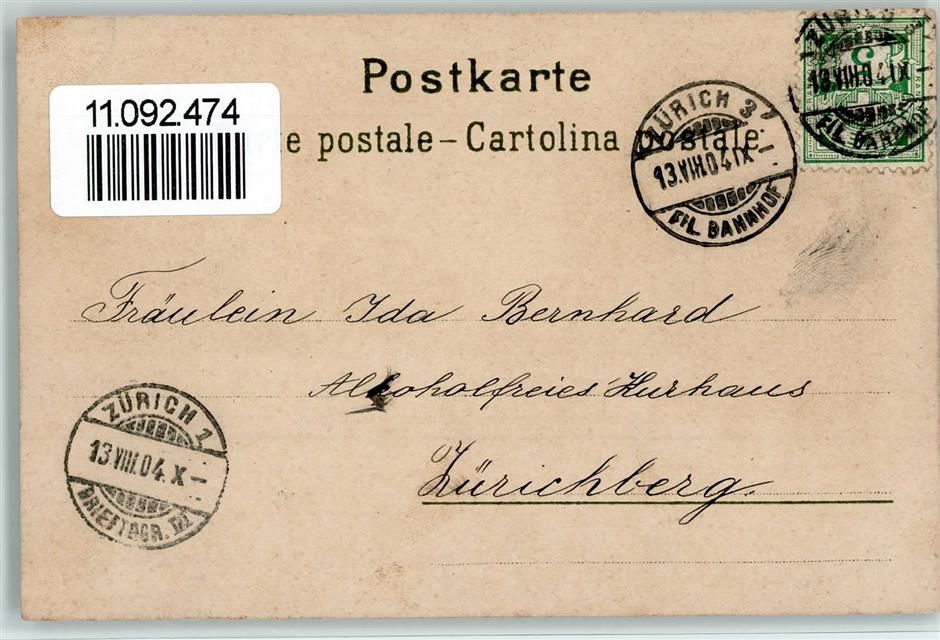 Postkarte
11.092.474
e postale – Cartolina postale
ZÜRICH 3
13.VIII.04.IX–
FIL. BAHNHOF
5
13.VIII.04.IX–
FIL. BAHNHOF
Fräulein Ida Bernhard
Alkoholfreies Kurhaus
Zürichberg.
ZÜRICH 1
13.VIII.04.X–
BRIEFTRGR.